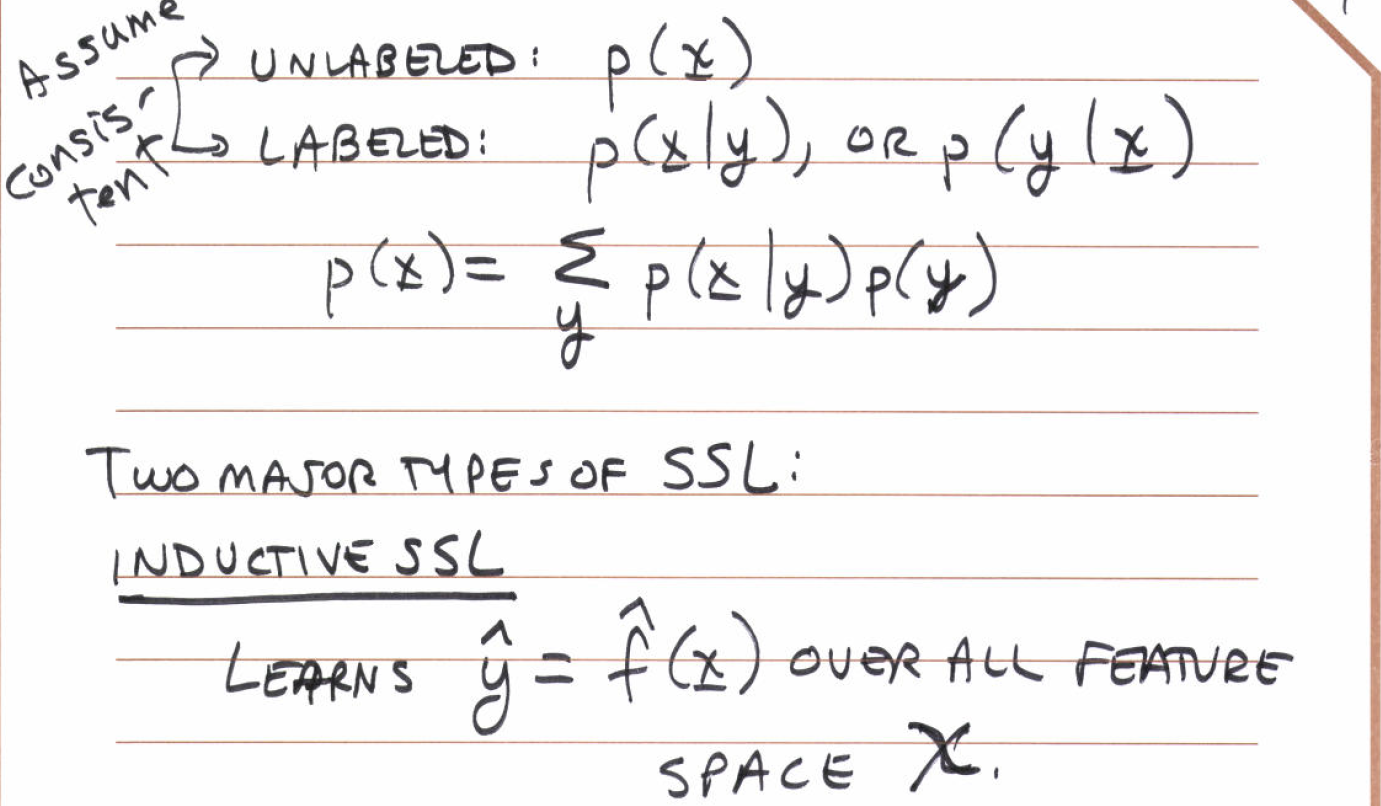 Assume
consis-
tent
UNLABELED: p(x)
LABELED: p(x|y), OR p(y|x)
p(x) = Σ p(x|y)p(y)
y
TWO MAJOR TYPES OF SSL:
INDUCTIVE SSL
LEARNS ŷ = f̂(x) OVER ALL FEATURE
SPACE X.